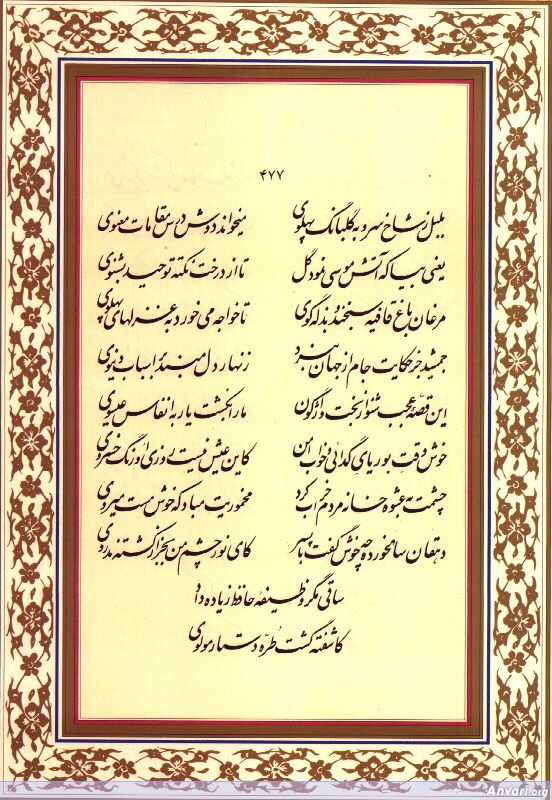 ۴۷۷
بلبل ز شاخ سرو به گلبانگ پهلوی میخواند دوش درس مقامات معنوی
یعنی بیا که آتش موسی نمود گل تا از درخت نکتهٔ توحید بشنوی
مرغان باغ قافیه سنجند و بذله گوی تا خواجه می خورد به غزلهای پهلوی
جمشید جز حکایت جام از جهان نبرد زنهار دل مبند بر اسباب دنیوی
این قصهٔ عجب شنو از بخت واژگون ما را بکشت یار به انفاس عیسوی
خوش وقت بوریای گدائی و خواب امن کاین عیش نیست روزی اورنگ خسروی
چشمت به عشوه خانهٔ مردم خراب کرد مخموریت مباد که خوش مست میروی
دهقان سالخورده چه خوش گفت با پسر کای نور چشم من بجز از کشته ندروی
ساقی مگر وظیفهٔ حافظ زیاده داد
کاشفته گشت طرّهٔ دستار مولوی
Anvari.org